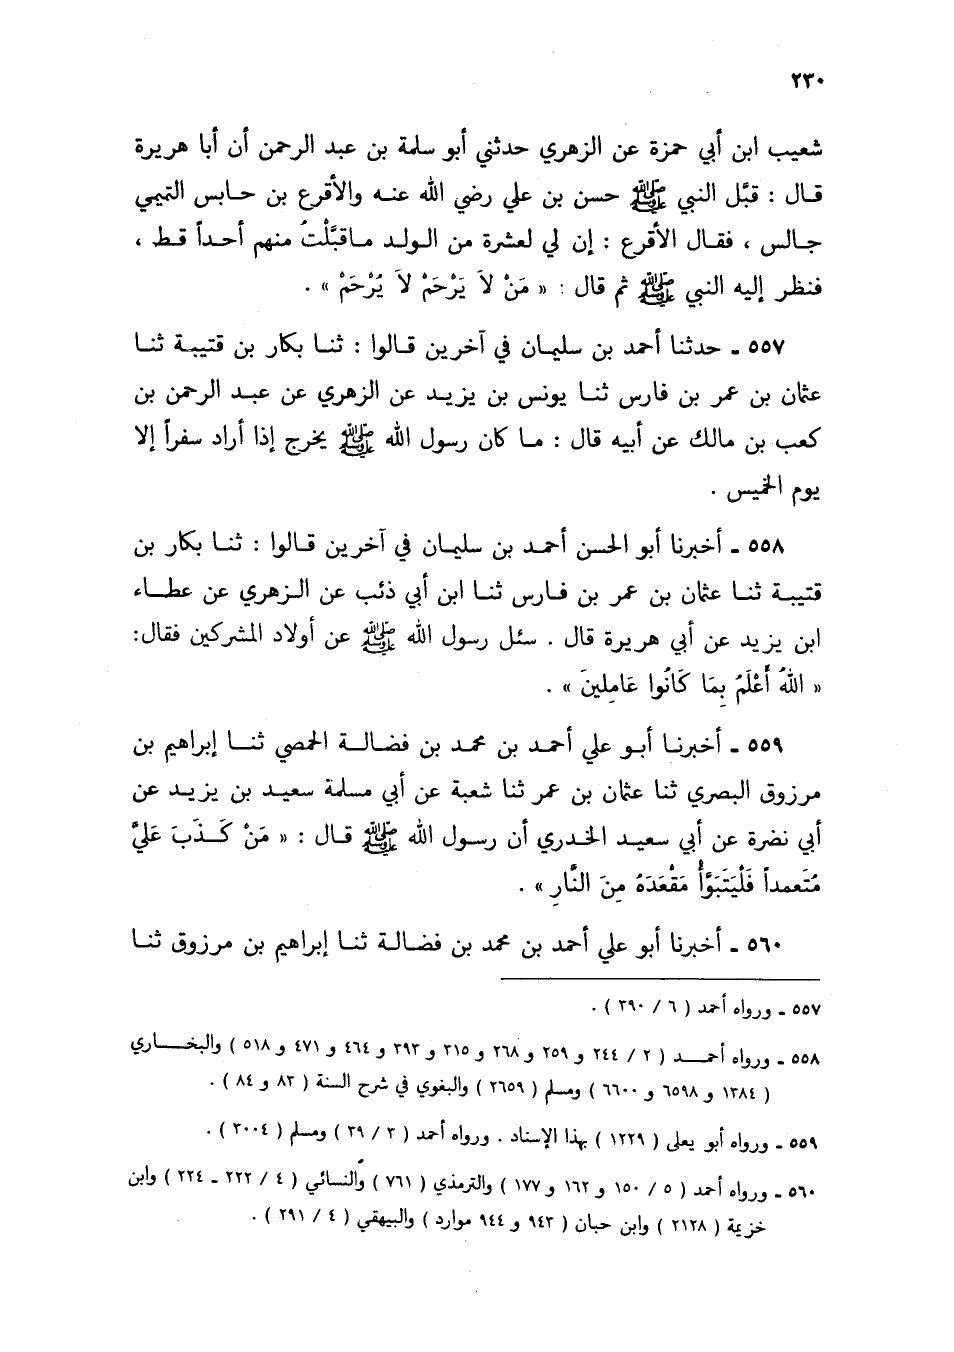 ٢٣٠
شعيب ابن أبي حمزة عن الزهري حدثني أبو سلمة بن عبد الرحمن أن أبا هريرة
قال : قبَّل النبي ﷺ حسن بن علي رضي الله عنه والأقرع بن حابس التيمي
جالس ، فقال الأقرع : إن لي لعشرة من الولد ماقبَّلْتُ منهم أحداً قط ،
فنظر إليه النبي ﷺ ثم قال : « مَنْ لاَ يَرْحَمْ لاَ يُرْحَمْ » .
٥٥٧ ـ حدثنا أحمد بن سليمان في آخرين قالوا : ثنا بكار بن قتيبة ثنا
عثمان بن عمر بن فارس ثنا يونس بن يزيد عن الزهري عن عبد الرحمن بن
كعب بن مالك عن أبيه قال : ما كان رسول الله ﷺ يخرج إذا أراد سفراً إلا
يوم الخميس .
٥٥٨ ـ أخبرنا أبو الحسن أحمد بن سليمان في آخرين قالوا : ثنا بكار بن
قتيبة ثنا عثمان بن عمر بن فارس ثنا ابن أبي ذئب عن الزهري عن عطاء
ابن يزيد عن أبي هريرة قال . سئل رسول الله ﷺ عن أولاد المشركين فقال:
« اللهُ أَعْلَمُ بِمَا كَانُوا عَامِلِينَ » .
٥٥٩ ـ أخبرنا أبو علي أحمد بن محمد بن فضالة الحمصي ثنا إبراهيم بن
مرزوق البصري ثنا عثمان بن عمر ثنا شعبة عن أبي مسلمة سعيد بن يزيد عن
أبي نضرة عن أبي سعيد الخدري أن رسول الله ﷺ قال : « مَنْ كَذَبَ عَلَيَّ
مُتَعمداً فَلْيَتَبَوَّأْ مَقْعَدَهُ مِنَ النَّارِ » .
٥٦٠ ـ أخبرنا أبو علي أحمد بن محمد بن فضالة ثنا إبراهيم بن مرزوق ثنا
٥٥٧ ـ ورواه أحمد ( ٦ / ٣٩٠ ) .
٥٥٨ ـ ورواه أحمد ( ٢ / ٢٤٤ و ٢٥٩ و ٢٦٨ و ٣١٥ و ٣٩٣ و ٤٦٤ و ٤٧١ و ٥١٨ ) والبخاري
( ١٣٨٤ و ٦٥٩٨ و ٦٦٠٠ ) ومسلم ( ٢٦٥٩ ) والبغوي في شرح السنة ( ٨٣ و ٨٤ ) .
٥٥٩ ـ ورواه أبو يعلى ( ١٢٢٩ ) بهذا الإسناد . ورواه أحمد ( ٣ / ٣٩ ) ومسلم ( ٣٠٠٤ ) .
٥٦٠ ـ ورواه أحمد ( ٥ / ١٥٠ و ١٦٢ و ١٧٧ ) والترمذي ( ٧٦١ ) والنسائي ( ٤ / ٢٢٢ ـ ٢٢٤ ) وابن
خزيمة ( ٢١٢٨ ) وابن حبان ( ٩٤٣ و ٩٤٤ موارد ) والبيهقي ( ٤ / ٢٩١ ) .